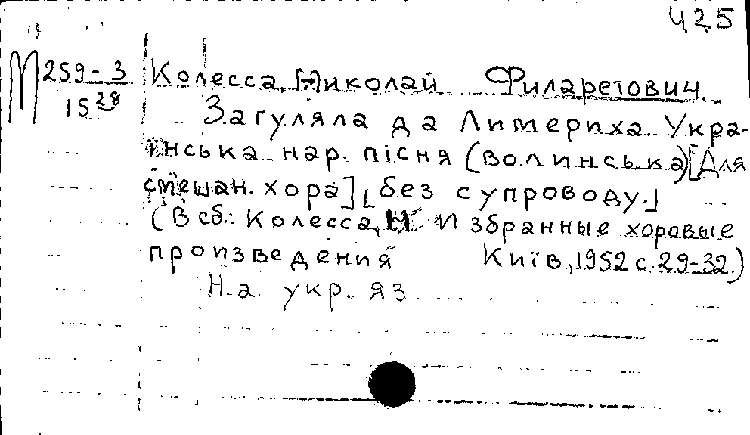 425
М 259-3 Колесса, Николай Филаретович.
15 28 Загуляла да Лимериха. Укра-
їнська нар. пісня (волинська) [Для
смешан. хора] [без супроводу.]
(В сб.: Колесса, Н. Избранные хоровые
произведения Київ, 1952 с. 29-32)
На укр. яз